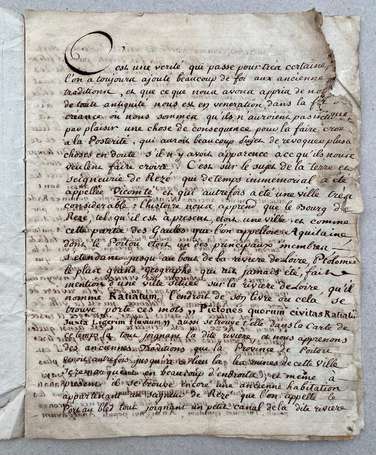 C'est une verité qui passe pour tres certaine,
l'on a toujours ajouté beaucoup de foi aux anciennes
traditions, et que ce que nous avons appris de nos
de toute antiquité nous est en veneration dans la
creance ou nous sommes qu'ils n'auroient pas
par plaisir une chose de consequence pour la faire
a la Posterité, qui auroit beaucoup sujet de revoquer plus
choses en doute s'il n'y avoit apparence a ce qu'ils nous
veulent faire croire. C'est sur le sujet de la terre et
seigneurie de Rezé qui de temps immemorial a eté
appellée Vicomté, et qui autrefois a eté une ville tres
considerable: l'histoire nous apprend que le Bourg de
Rezé, tel qu'il est à present, etoit une ville, et comme
cette partie des Gaules que l'on appelloit Aquitaine
dans le Poitou etoit un des principaux membres
s'etendant jusqu'au bout de la riviere de Loire, Ptolomée
le plus grand geographe qui ait jamais eté, fait
mention d'une ville située sur la riviere de Loire, qu'il
nomme Ratiatum, l'endroit de son livre ou cela se
trouve porte ces mots ,, Pictones quorum civitas Ratiatum
Juxta Ligerim flumen ,, aussi se trouve t'elle dans la Carte de
tout joignant la dite riviere, et nous apprenons
des anciennes Traditions que la Province de Poitou
autrefois jusqu'a ce lieu la, les ruines de cette Ville
en beaucoup d'endroits, et même à
present il se trouve encore une ancienne habitation
appartenant au seigneur de Rezé que l'on appelle le
Port au bled tout joignant un petit canal de la dite riviere